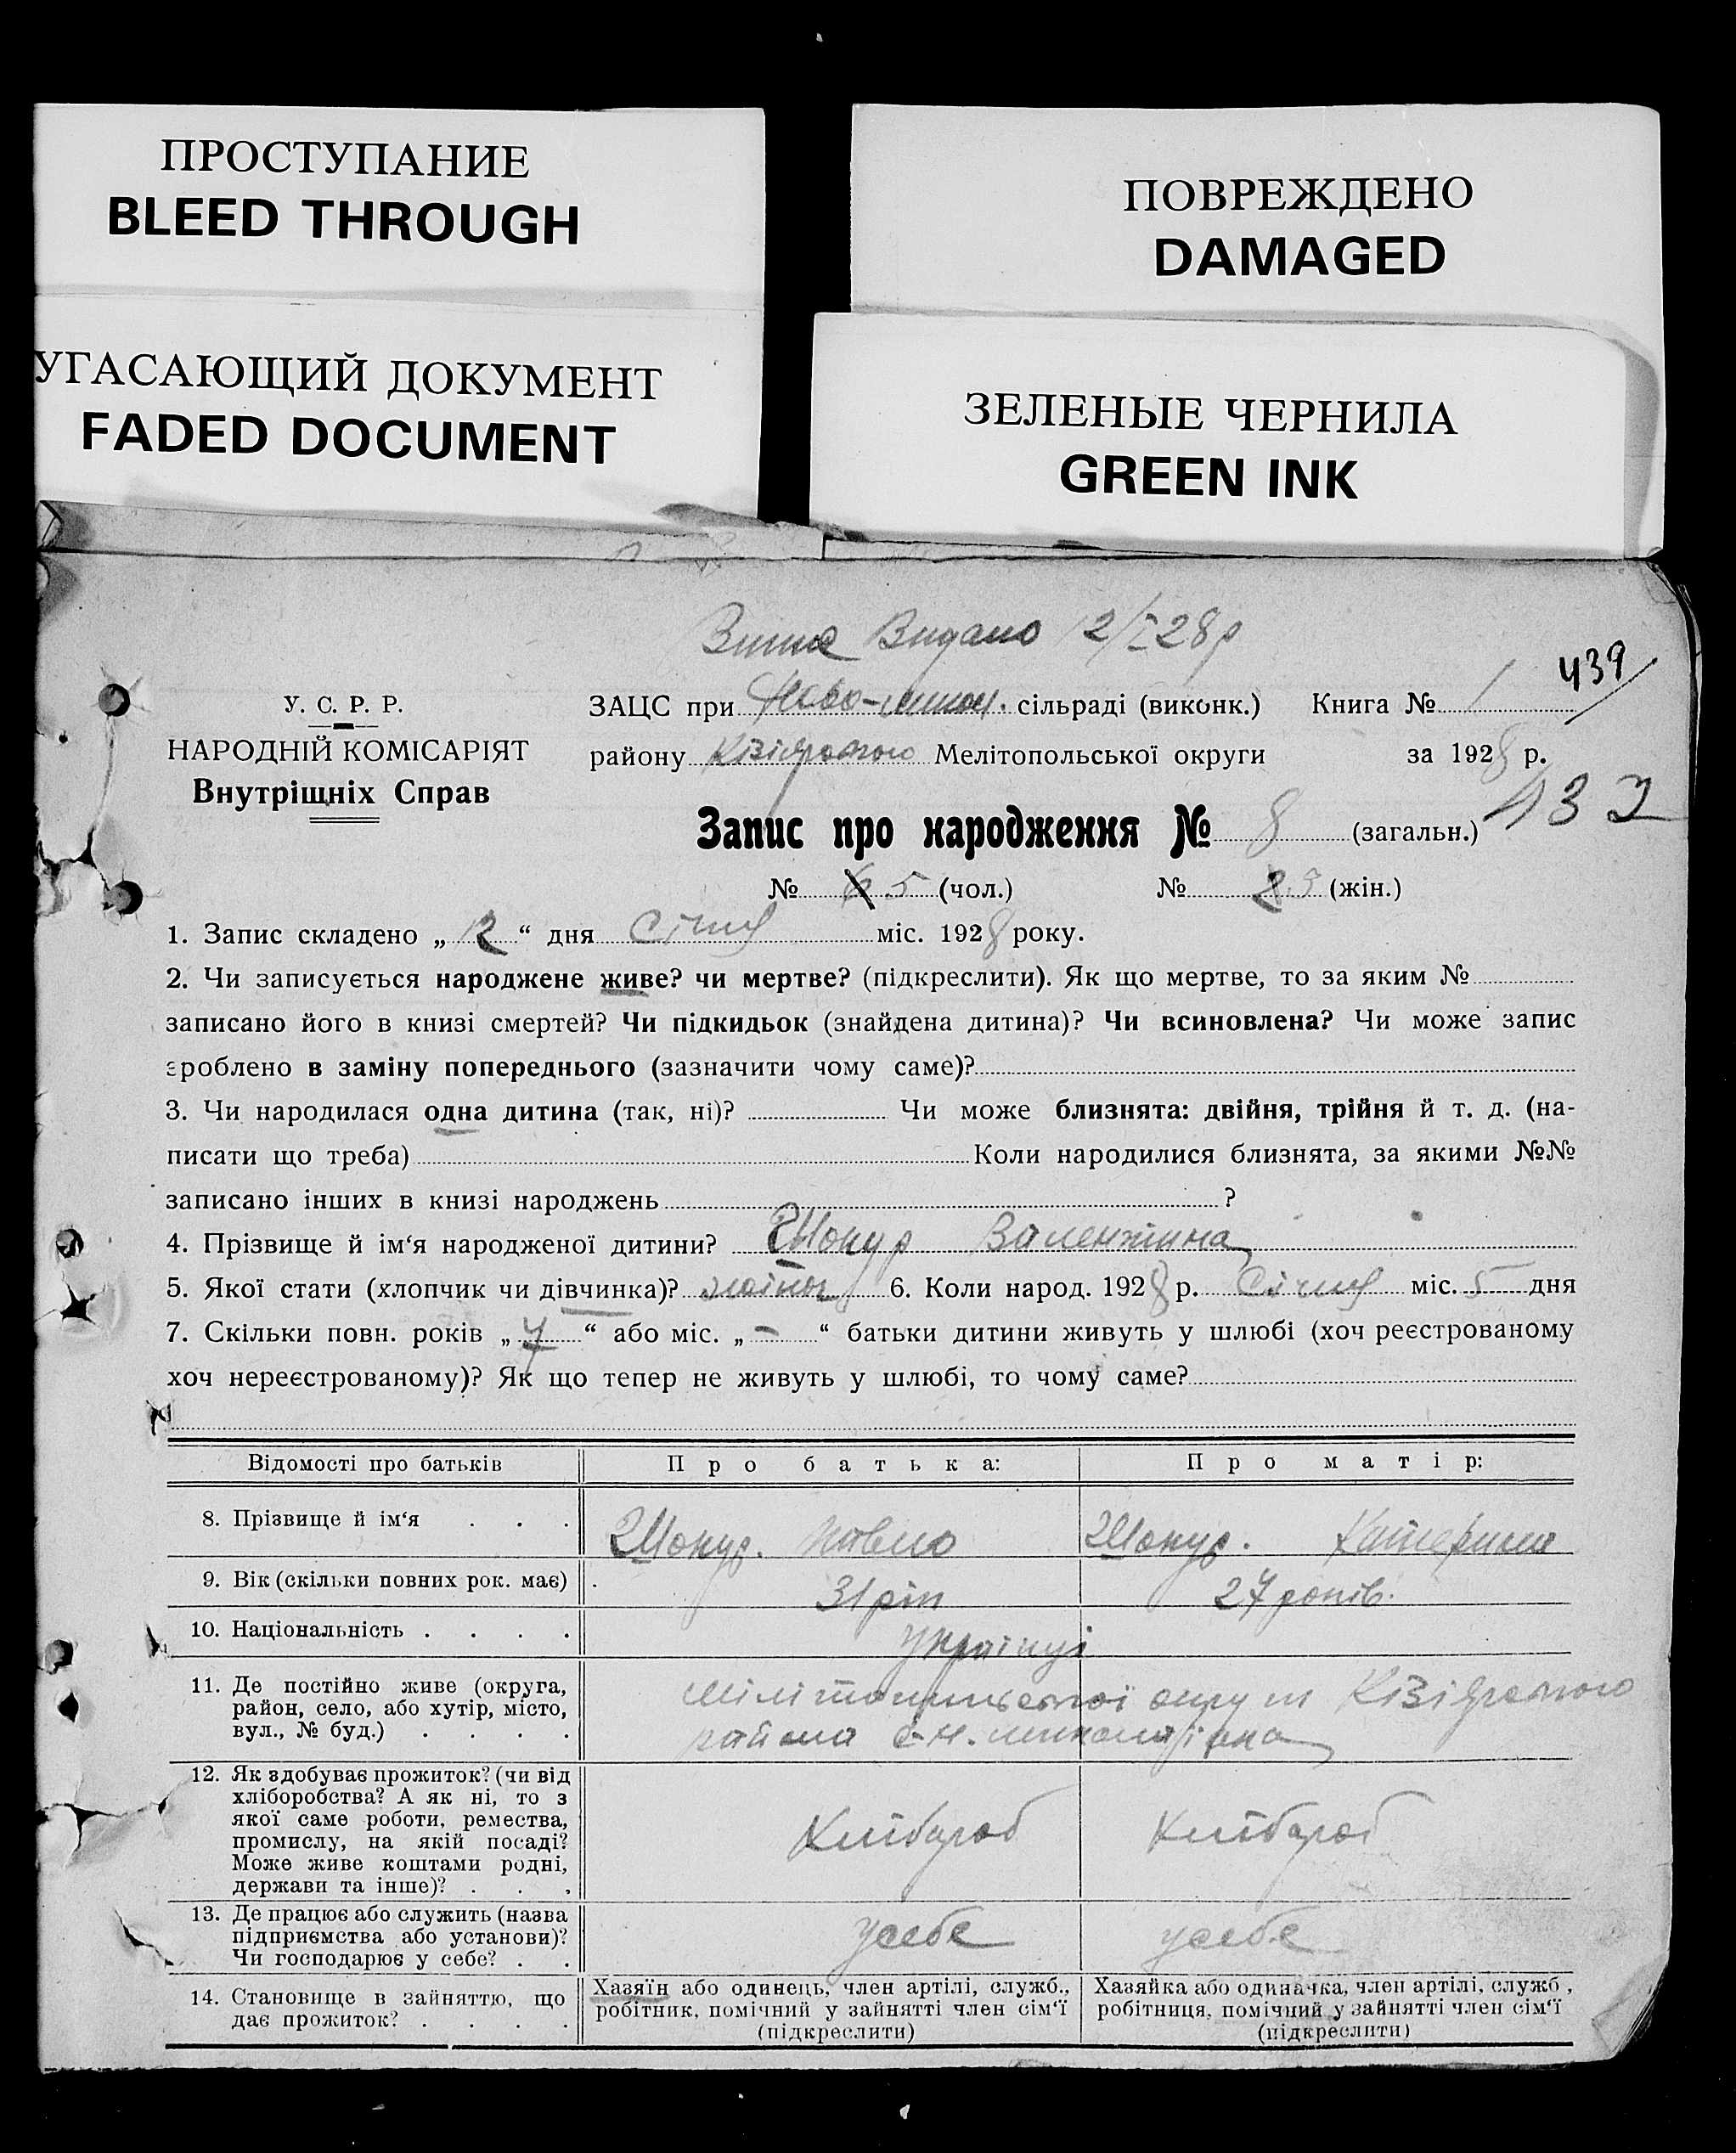 ПРОСТУПАНИЕ
BLEED THROUGH
ПОВРЕЖДЕНО
DAMAGED
УГАСАЮЩИЙ ДОКУМЕНТ
FADED DOCUMENT
ЗЕЛЕНЫЕ ЧЕРНИЛА
GREEN INK
Видано 12/I 28р
439
У. С. Р. Р.
НАРОДНІЙ КОМІСАРІЯТ
Внутрішніх Справ
ЗАЦС при Ново- сільраді (виконк.) Книга № 1
району Мелітопольської округи за 1928 р.
432
Запис про народження № 8 (загальн.)
№ 6 5 (чол.) № 2 3 (жін.)
1. Запис складено „ 12 “ дня Січня міс. 1928 року.
2. Чи записується народжене живе? чи мертве? (підкреслити). Як що мертве, то за яким №
записано його в книзі смертей? Чи підкидьок (знайдена дитина)? Чи всиновлена? Чи може запис
зроблено в заміну попереднього (зазначити чому саме)?
3. Чи народилася одна дитина (так, ні)? Чи може близнята: двійня, трійня й т. д. (на-
писати що треба) Коли народилися близнята, за якими №№
записано інших в книзі народжень ?
4. Прізвище й ім‘я народженої дитини? Шокур Валентина
5. Якої стати (хлопчик чи дівчинка)? жіноч 6. Коли народ. 1928 р. Січня міс. 5 дня
7. Скільки повн. років „ 7 “ або міс. „ - “ батьки дитини живуть у шлюбі (хоч реєстрованому
хоч нереєстрованому)? Як що тепер не живуть у шлюбі, то чому саме?
Відомості про батьків Про батька: Про матір:
8. Прізвище й ім‘я . . . Шокур. Павло Шокур. Катерина
9. Вік (скільки повних рок. має) 31 рік 27 років.
10. Національність . . . . українці
11. Де постійно живе (округа,
район, село, або хутір, місто,
вул., № буд.) . . . .
Мілітопільської округи
района с-Н.
12. Як здобуває прожиток? (чи від
хліборобства? А як ні, то з
якої саме роботи, ремества,
промислу, на якій посаді?
Може живе коштами родні,
держави та інше)? . . .
Хлібароб Хлібароб
13. Де працює або служить (назва
підприємства або установи)?
Чи господарює у себе? . .
у себе у себе
14. Становище в зайняттю, що
дає прожиток? . . . .
Хазяїн або одинець, член артілі, служб.,
робітник, помічний у зайнятті член сім‘ї
(підкреслити)
Хазяйка або одиначка, член артілі, служб.,
робітниця, помічний у зайнятті член сім‘ї
(підкреслити)